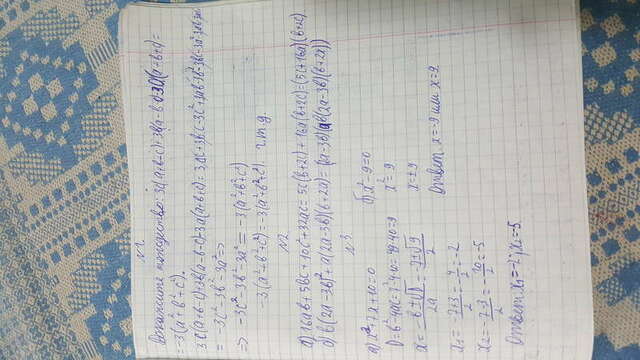 N1
Докажите тождество: 3c(a+b-c)+3b(a-b-c)-3a(a+b+c)=
=-3(a²+b²+c²).
3c(a+b-c)+3b(a-b-c)-3a(a+b+c)=3ac+3bc-3c²+3ab-3b²-3bc-3a²-3ab-3ac
= -3c²-3b²-3a² =>
=> -3c²-3b²-3a²=-3(a²+b²+c²)
-3(a²+b²+c²)=-3(a²+b²+c²). ч.т.д.
N2
а) 16ab+5bc+10c²+32ac=5c(b+2c)+16a(b+2c)=(5c+16a)(b+2c)
б) b(2a-3b)²+a(2a-3b)(b+2a)=
N3
а) x²+7x+10=0
D=b²-4ac=7²-4·10=49-40=9
x=(-b±√D)/2a=(-7±√9)/2
x₁=(-7+3)/2=-4/2=-2
x₂=(-7-3)/2=-10/2=-5
Ответ: x₁=-2; x₂=-5.
б) x²-9=0
x²=9
x=±9
Ответ x=-9 или x=9.